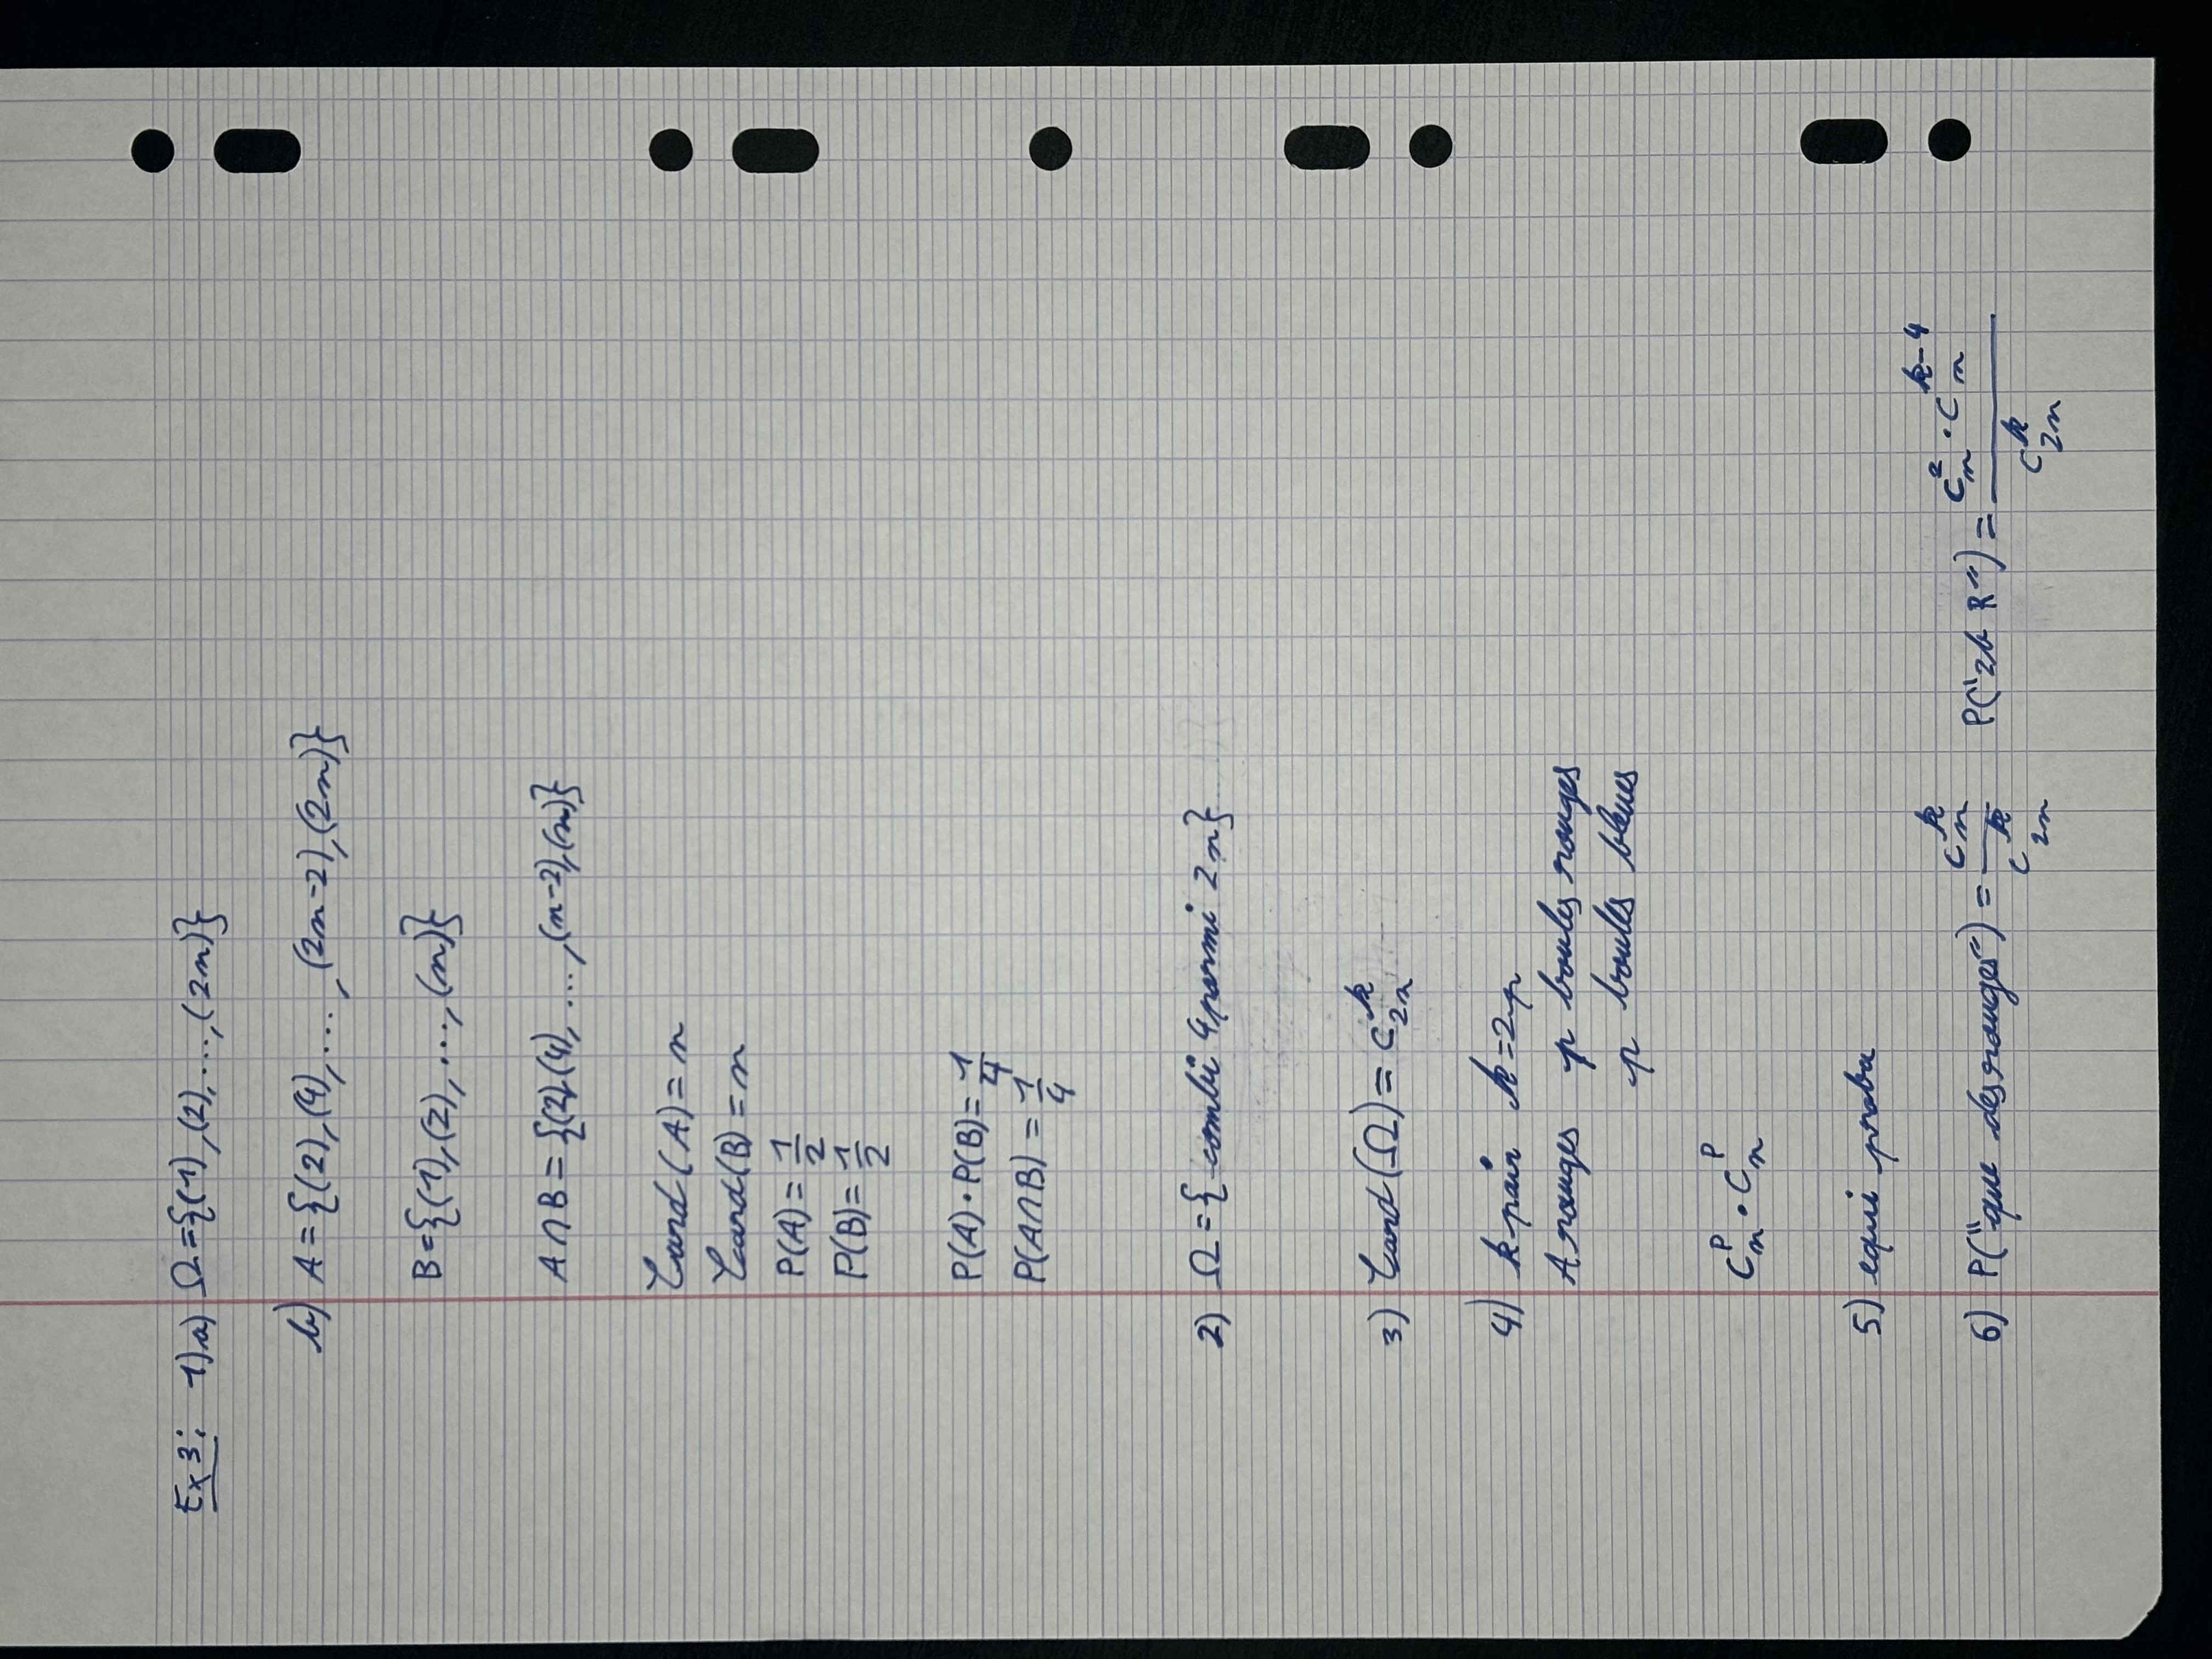 Ex 3: 1) a) Ω = {(1), (2), ..., (2n)}
b) A = {(2), (4), ..., (2n-2), (2n)}
B = {(1), (2), ..., (n)}
A ∩ B = {(2), (4), ..., (n-2), (n)}
Card(A) = n
Card(B) = n
P(A) = 1/2
P(B) = 1/2
P(A) · P(B) = 1/4
P(A∩B) = 1/4
2) Ω = { combi 4 parmi 2n}
3) Card(Ω) = C_{2n}^{k}
4) k pair k = 2p
A rouges p boules rouges
p boules bleues
C_n^p · C_n^p
5) equi proba
6) P("que des rouges") = C_n^k / C_{2n}^k P("2b R") = C_n^2 · C_n^{k-4} / C_{2n}^k